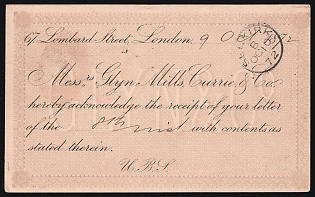 67 Lombard Street, London, 9 Oct 72
Mess.rs Glyn, Mills, Currie, & Co.
hereby acknowledge the receipt of your letter
of the 8th inst with contents as
stated therein.
U.B.S.